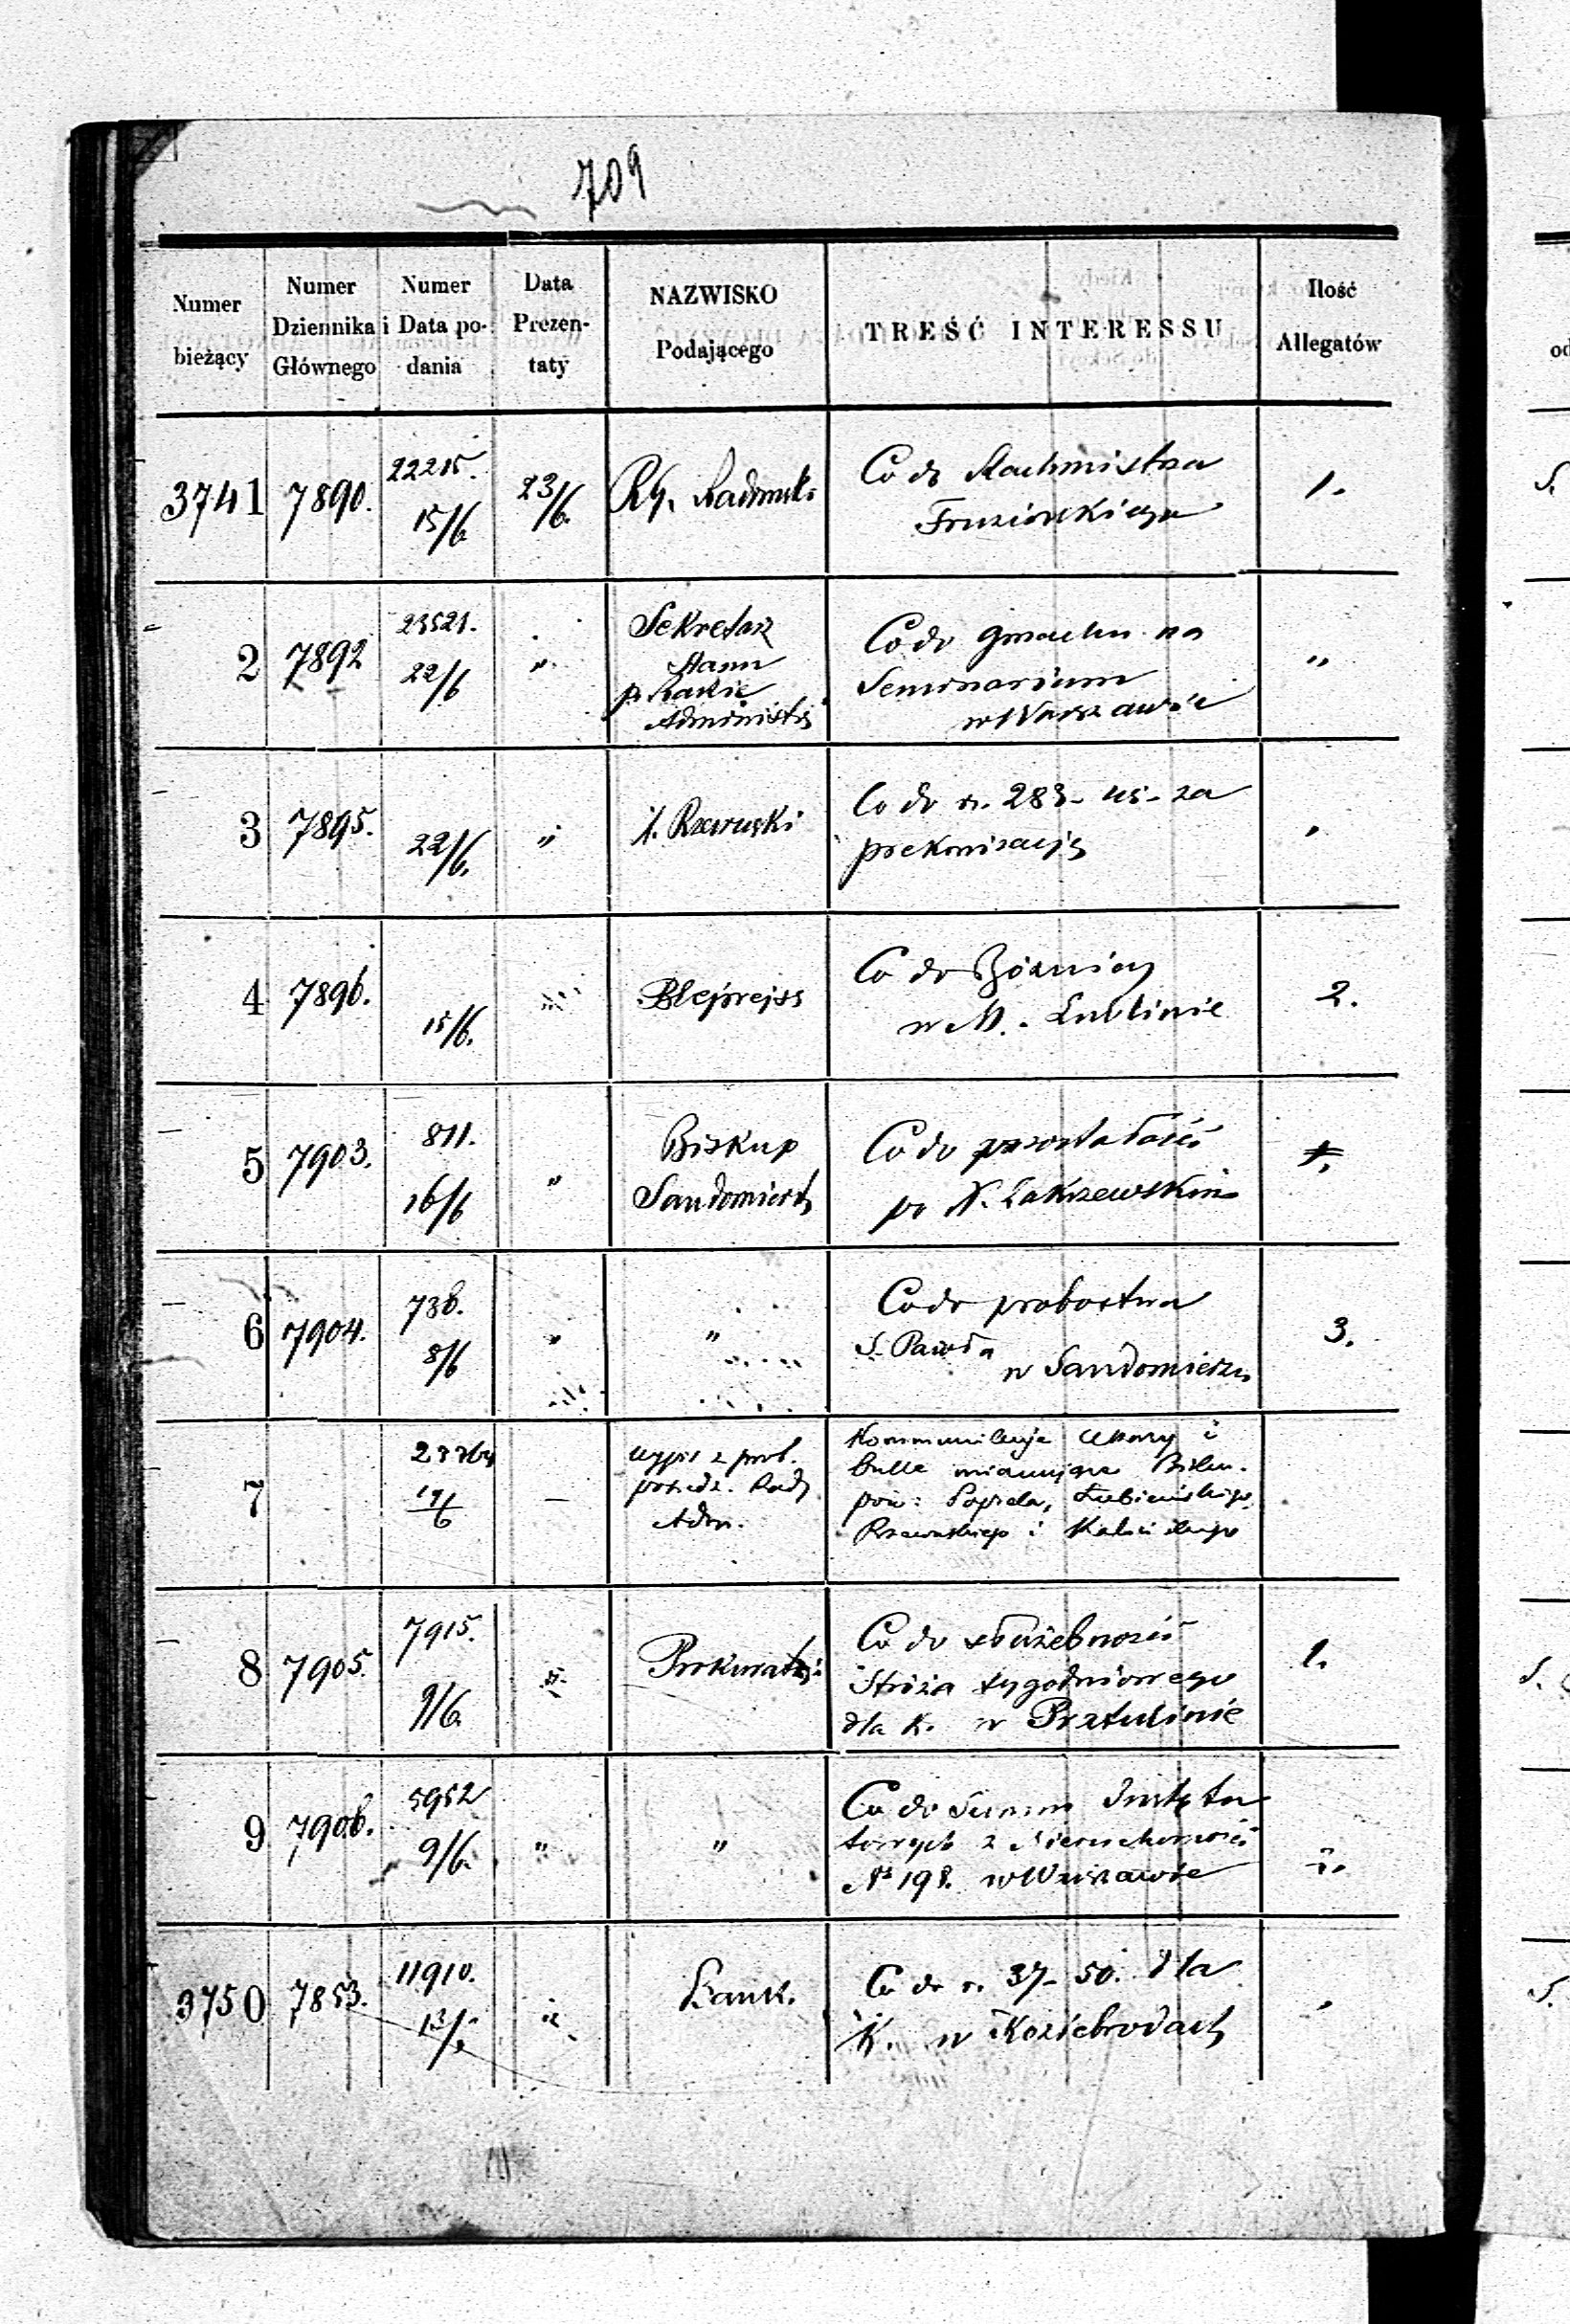 709
Numer bieżący
Numer Dziennika Głównego
Numer i Data podania
Data Prezentaty
NAZWISKO Podającego
TREŚĆ INTERESSU
Ilość Allegatów
3741 7890. 22215. 15/6 23/6. Rg. Radomski
Co do Rachmistrza
1.
2 7892 23521. 22/6 "
Sekretarz
Stanu
p. Radzie
Administr
Co do gmachu na
Seminarium
w Warszawie
"
3 7895. 22/6. "
X. Rzewuski
Co do r. 283- 45- za
prekonizacyę
4 7896. 15/6. "
Blejwejss
Co do Bóżnicy
w M. Lublinie
2.
5 7903. 811. 16/6 "
Biskup
Sandomiersk
Co do pozostałości
po X. Zakrzewskim
1.
6 7904. 738. 8/6 " "
Co do probostwa
S. Pawła
w Sandomierzu
3.
7 23764 17/6 —
wypis z prot.
posiedz. Rady
Adm.
Kommunikuje ukazy i
bulle mianujące Bisku-
pów: Popiela, Łubieńskiego,
Rzewuskiego i
8 7905. 7915. 9/6. "
Prokuratorji
Co do służebności
Stróża tygodniowego
dla K. w Pratulinie
1.
9 7906. 5952 9/6. " "
Co do Summ
z Nieruchomości
№ 198. w Warszawie
3750 7853. 11910. "
Bank.
Co do r. 37- 50. dla
K. w Koziebrodach